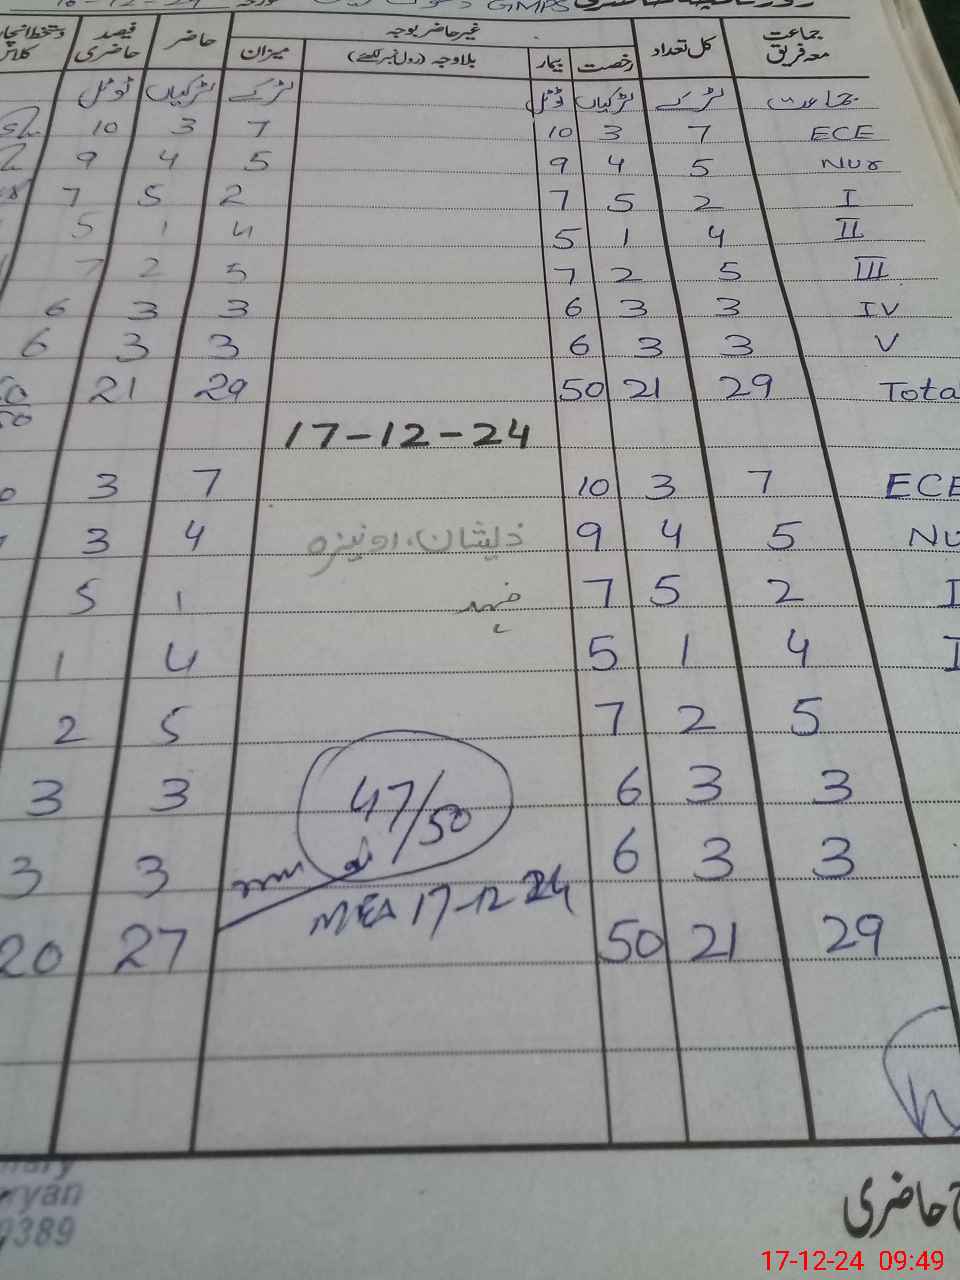 جماعت معہ فریق کل تعداد رخصت بیمار غیر حاضر بوجہ بلاوجہ (رول نمبر لکھئے) میزان حاضر فیصد حاضری
جماعت لڑکے لڑکیاں ٹوٹل لڑکے لڑکیاں ٹوٹل
ECE 7 3 10 7 3 10
Nur 5 4 9 5 4 9
I 2 5 7 2 5 7
II 4 1 5 4 1 5
III 5 2 7 5 2 7
IV 3 3 6 3 3 6
V 3 3 6 3 3 6
Total 29 21 50 29 21
17-12-24
ECE 7 3 10 7 3
Nu 5 4 9 4 3
I 2 5 7 1 5
I 4 1 5 4 1
5 2 7 5 2
3 3 6 3 3
47/50
3 3 6 3 3
MEA 17-12-24
29 21 50 27 20
حاضری
ryan
9389
17-12-24 09:49